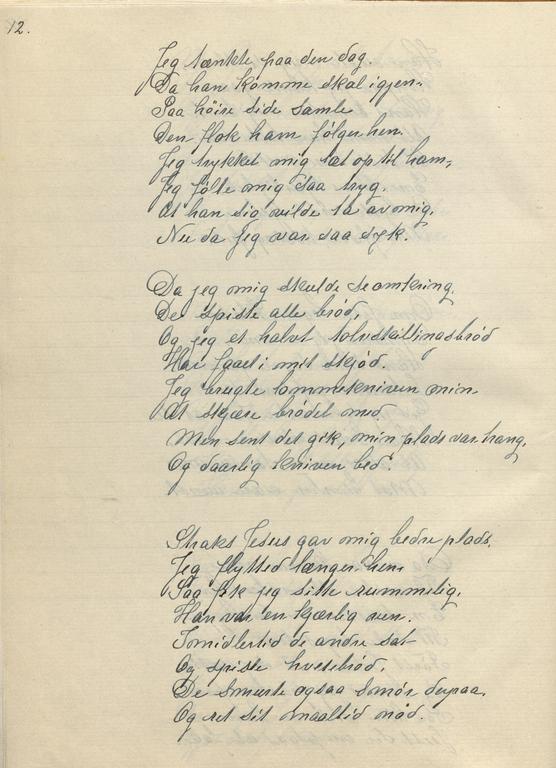 12.
Jeg tænkte paa den dag.
Da han komme skal igjen.
Paa höire side samle
Den flok ham fölger hen.
Jeg trykket mig tæt op til ham,
Jeg fölte mig saa tryg.
At han sig vilde ta av mig.
Nu da jeg var saa syk.
Da jeg mig skulde se omkring.
De spiste alle bröd,
Og jeg et halvt tolvskillingsbröd
Har faaet i mit skjöd.
Jeg brugte lommekniven min
At skjære brödet med
Men sent det gik, min plads var trang.
Og daarlig kniven bed.
Straks Jesus gav mig bedre plads.
Jeg flytted længer hen.
Saa fik jeg sitte rummelig.
Han var en kjærlig ven.
Imidlertid de andre sat
Og spiste hvetebröd.
De smurte ogsaa smör derpaa.
Og ret sit maaltid nöd.